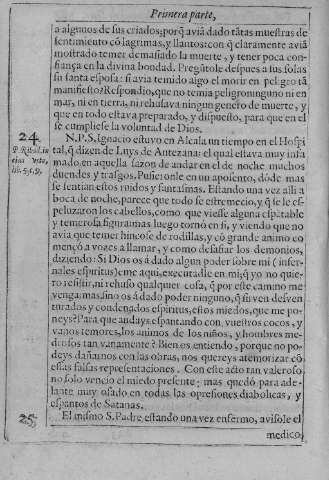 Primera parte,
a algunos de sus criados; porq̃ aviâ dado tãtas muestras de
sentimiento cõ lagrimas, y llantos: con q̃ claramente aviâ
mostrado temer demasiado la muerte, y tener poca con-
fiança en la divina bondad. Pregûtole despues a sus solas
su santa esposa: si avia temido algo el morir en peligro tã
manifiesto? Respondio, que no temia peligro ninguno ni en
mar, ni en tierra, ni rehusava ningun genero de muerte, y
que en todo estava preparado, y dispuesto, para que en el
se cumpliesse la voluntad de Dios.
24
N. P. S. Ignacio estuvo en Alcala un tiempo en el Hospi
tal, q̃ dizen de Luys de Antezana: el qual estava muy infa
mado, en aquella sazon de andar en el de noche muchos
duendes y trasgos. Pusieronle en un aposento, dõde mas
se sentian estos ruidos y fantasmas. Estando una vez alli a
boca de noche, parece que todo se estremecio, y q̃ se le es-
peluzaron los cabellos, como que viesse alguna espãtable
y temerosa figura: mas luego tornò en si, y viendo que no
avia que temer hincose de rodillas, y cõ grande animo co
mençò a vozes a llamar, y como desafiar los demonios,
diziendo: Si Dios os à dado algun poder sobre mi (infer-
nales espiritus) eme aqui, executadle en mi, q̃ yo no quie-
ro resistir, ni rehuso qualquier cosa, q̃ por este camino me
venga: mas, sino os à dado poder ninguno, q̃ sirven desven
turados y condenados espiritus, estos miedos, que me po-
neys? Para que andays espantando con vuestros cocos, y
vanos temores, los animos de los niños, y hombres me-
drosos tan vanamente? Bien os entiendo, porque no po-
deys dañarnos con las obras, nos quereys atemorizar cõ
essas falsas representaciones. Con este acto tan valeroso
no solo vencio el miedo presente; mas quedò para ade-
lante muy osado en todas las opresiones diabolicas, y
espantos de Satanas.
25
El mismo S. Padre estando una vez enfermo, avisole el
medico,